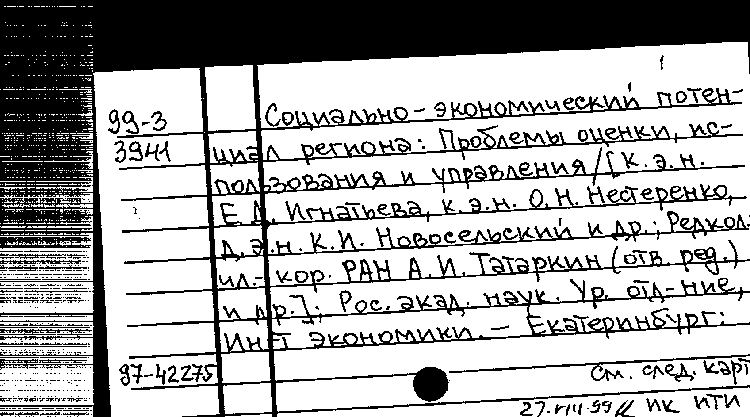 99-3 Социально-экономический потен-
3941 циал региона: Проблемы оценки, ис-
пользования и управления/[к.э.н.
Е.Д. Игнатьева, к.э.н. О.Н. Нестеренко,
д.э.н. К.И. Новосельский и др.; Редкол.:
чл.-кор. РАН А.И. Татаркин (отв. ред.)
и др.]; Рос. акад. наук. Ур. отд-ние,
Ин-т экономики. – Екатеринбург:
97-42275 См. след. карт
27.VIII.99 ПК ИТИ